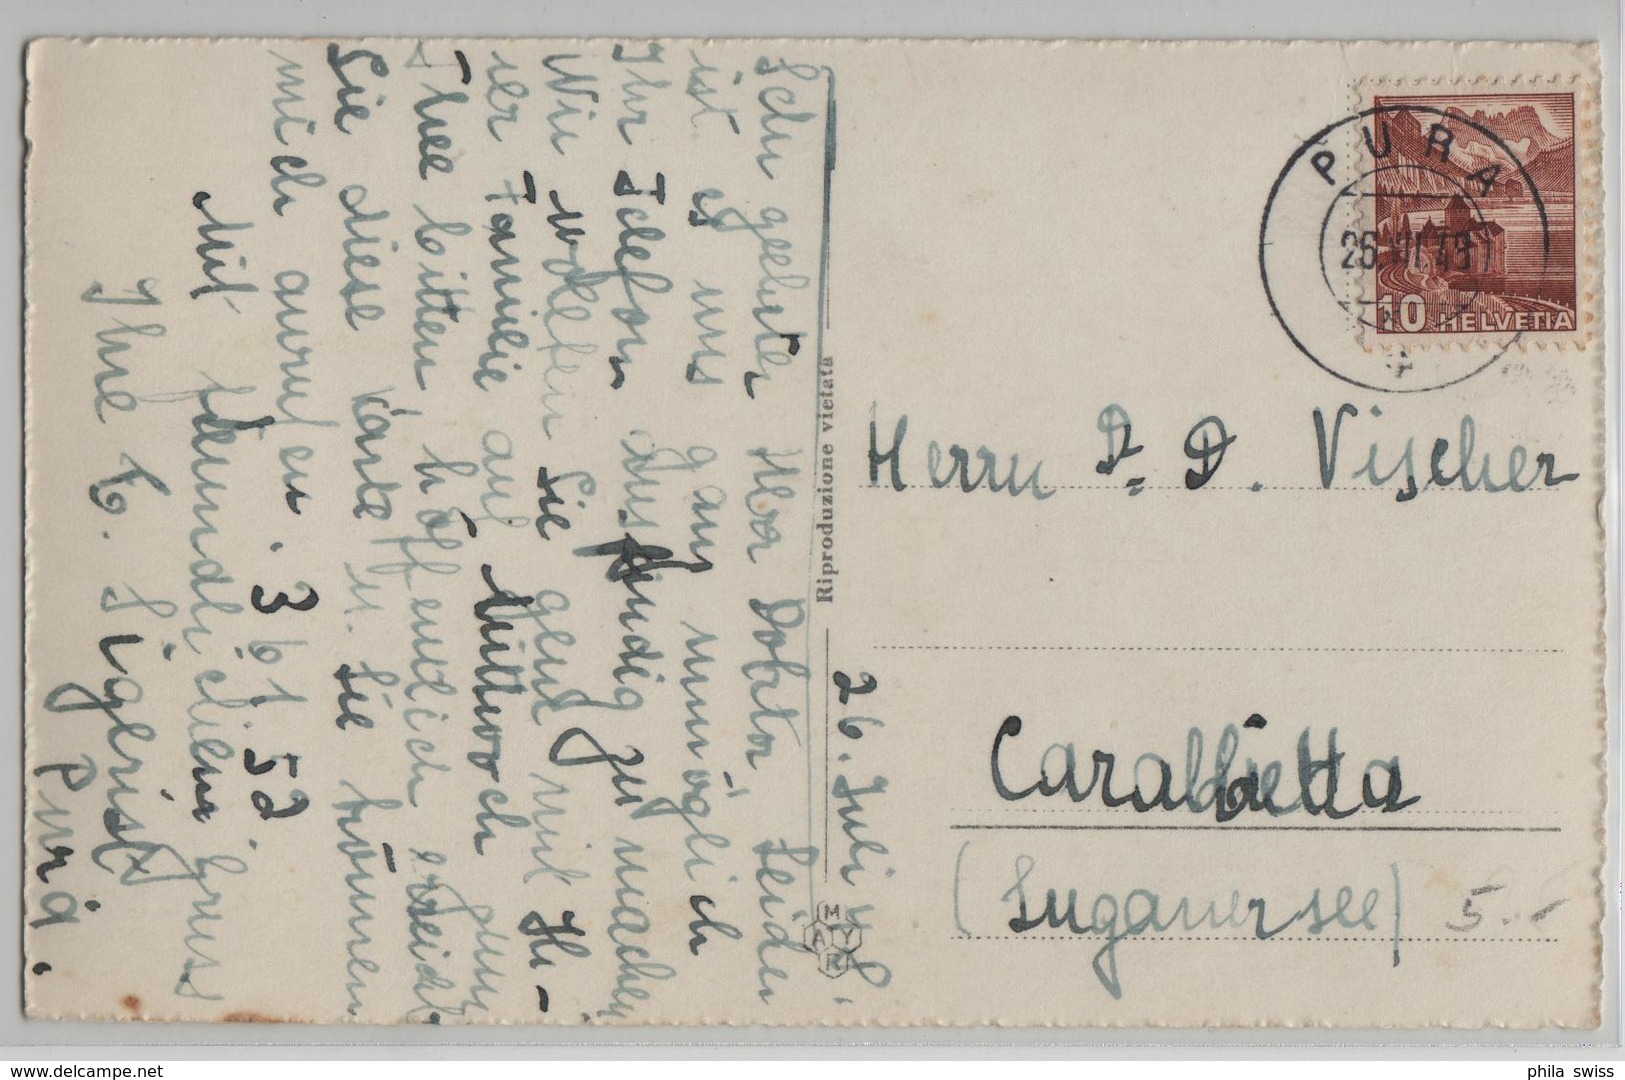 Sehr geehrter Herr Doktor Leider
ist es uns ganz unmöglich
Ihr Telefon ausfindig zu machen
Wir wollten Sie gerne mit Ih-
rer Familie auf Mittwoch zum
Thee bitten, hoffentlich erreicht
Sie diese Karte u. Sie können
mich anrufen. 3 61 52
Mit freundlichem Gruss
Ihre E. Sigerist
Pura.
26. Juli 48.
Riproduzione vietata
MAYR
PURA
26.VII.48
10 HELVETIA
Herrn Dr. D. Vischer
Carabietta
(Luganersee)
5.-
phila swiss